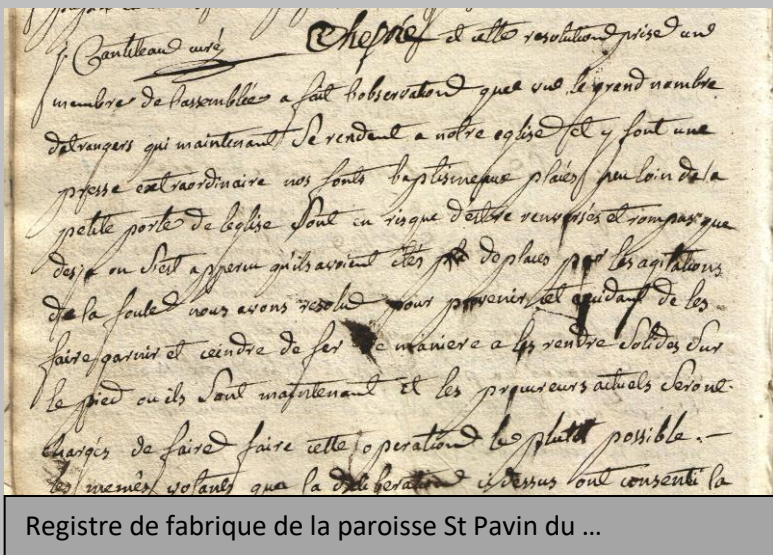 J. Cantileau curé Chesné et cette resolution prise une
membre de l'assemblée a fait l'observation que vue le grend nombre
detrangers qui maintenant se rendent a notre eglise et y font une
presse extraordinaire nos fonts baptismeaux placés peu loin de la
petite porte de l'eglise sont en risque d'estre renversés et rompas que
desja on s'est apperçu qu'ils avoient étés deplacés par les agitations
de la foule nous avons resolu pour prevenir cet accidant de les
faire garnir et ceindre de fer de maniere a les rendre solides sur
le pied ou ils sont maintenant et les procureurs actuels seront
chargés de faire faire cette operation le plutot possible.-
les memes votants que la deliberation cidessus ont consenti la
Registre de fabrique de la paroisse St Pavin du ...